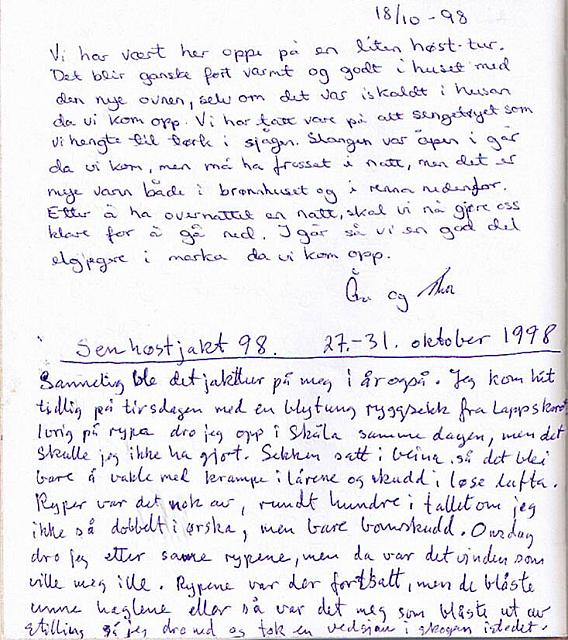 18/10 - 98
Vi har vært her oppe på en liten høst-tur.
Det blir ganske fort varmt og godt i huset med
den nye ovnen, selv om det var iskaldt i husan
da vi kom opp. Vi har tatt vare på alt sengetøyet som
vi hengte til tørk i sjågen. Slangen var åpen i går
da vi kom, men må ha frosset i natt, men det er
mye vann både i brønnhuset og i renna nedenfor.
Etter å ha overnattet en natt, skal vi nå gjøre oss
klare for å gå ned. I går så vi en god del
elgjegere i marka da vi kom opp.
og
Senhøstjakt 98. 27.-31. oktober 1998
Sannelig ble det jakttur på meg i år også. Jeg kom hit
tidlig på tirsdagen med en blytung ryggsekk fra Lappskard
Ivrig på rypa dro jeg opp i Skåla samme dagen, men det
skulle jeg ikke ha gjort. Sekken satt i beina, så det blei
bare å vakle med krampe i lårene og skudd i løse lufta.
Ryper var det nok av, rundt hundre i tallet om jeg
ikke så dobbelt i ørska, men bare bomskudd. Onsdag
dro jeg etter samme rypene, men da var det vinden som
ville meg ille. Rypene var der fortsatt, men de blåste
unna haglene eller så var det meg som blåste ut av
stilling så jeg dro ned og tok en vedsjau i skogen istedet.